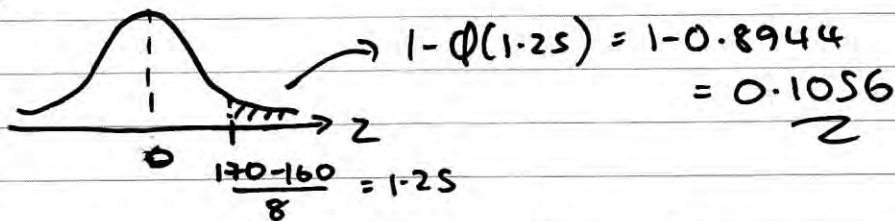 1-Φ(1.25) = 1-0.8944
= 0.1056
Z
0
170-160
8
= 1.25